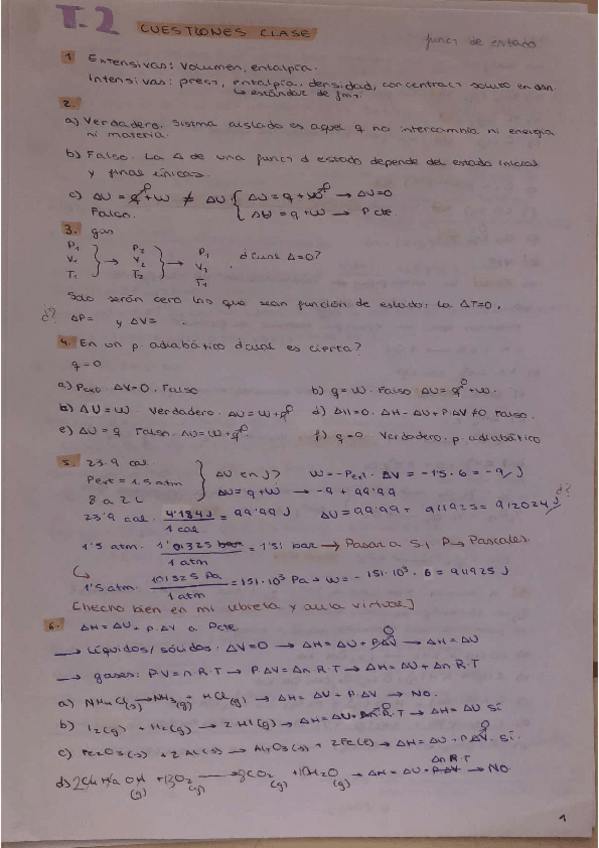 T.2 CUESTIONES CLASE
func⁊ de estado
1 Extensivas: Volumen, entalpía.
Intensivas: pres⁊, entalpía, densidad, concentrac⁊ soluto en dsn.
↳ estándar de fm⁊.
2.
a) Verdadero. Sistema aislado es aquel q no intercambia ni energía
ni materia.
b) Falso. La Δ de una func⁊ d estado depende del estado inicial
y final únicas.
c) ΔU = q + W ≠ ΔU { ΔU = q + W → ΔU=0
Falso. ΔU = q + W → P cte
3. gas
P₁ V₁ T₁ } → P₂ V₂ T₂ } → P₁ V₁ T₁ . ¿cual Δ=0?
Solo serán cero los que sean función de estado: la ΔT=0,
¿? ΔP= y ΔV= .
4. En un p. adiabático ¿cual es cierta?
q=0
a) Pext. ΔV=0. Falso
b) q=W. Falso ΔU = q⁰ + W.
b) ΔU=W. Verdadero. ΔU = W+q⁰
d) ΔH=0. ΔH=ΔU+P.ΔV≠0 Falso.
e) ΔU = q Falso. ΔU=W+q⁰.
f) q=0. Verdadero. p. adiabático
5. 23'9 cal
Pext = 1'5 atm
8 a 2L
} ΔU en J?
W=-Pext. ΔV = -1'5 · 6 = -9 J
ΔU = q+W → -9 + 99'99
¿?
23'9 cal. 4'184J / 1 cal = 99'99 J
ΔU= 99'99 + 911925 = 912024 J
1'5 atm. 1'01325 bar / 1 atm = 1'51 bar → Pasar a S.I P→ Pascales.
↳ 1'5 atm. 101325 Pa / 1 atm = 151·10³ Pa → W = - 151·10³ · 6 = 911925 J
[Hecho bien en mi libreta y aula virtual]
6. ΔH = ΔU + P.ΔV a Pcte.
→ Líquidos/sólidos: ΔV=0 → ΔH = ΔU + PΔV⁰ → ΔH = ΔU
→ gases: P.V = n.R.T → P.ΔV = Δn.R.T → ΔH = ΔU + Δn R.T
a) NH₄Cl(s) → NH₃(g) + HCl(g) → ΔH = ΔU + P.ΔV → NO.
b) I₂(g) + H₂(g) → 2 HI(g) → ΔH = ΔU + Δn⁰R.T → ΔH = ΔU Sí
c) Fe₂O₃(s) + 2 Al(s) → Al₂O₃(s) + 2Fe(l) → ΔH = ΔU + P.ΔV⁰. Sí.
Δn R.T
(g) + 13O₂(g) → 8CO₂(g) + 10H₂O(g) → ΔH = ΔU + P.ΔV → NO
1